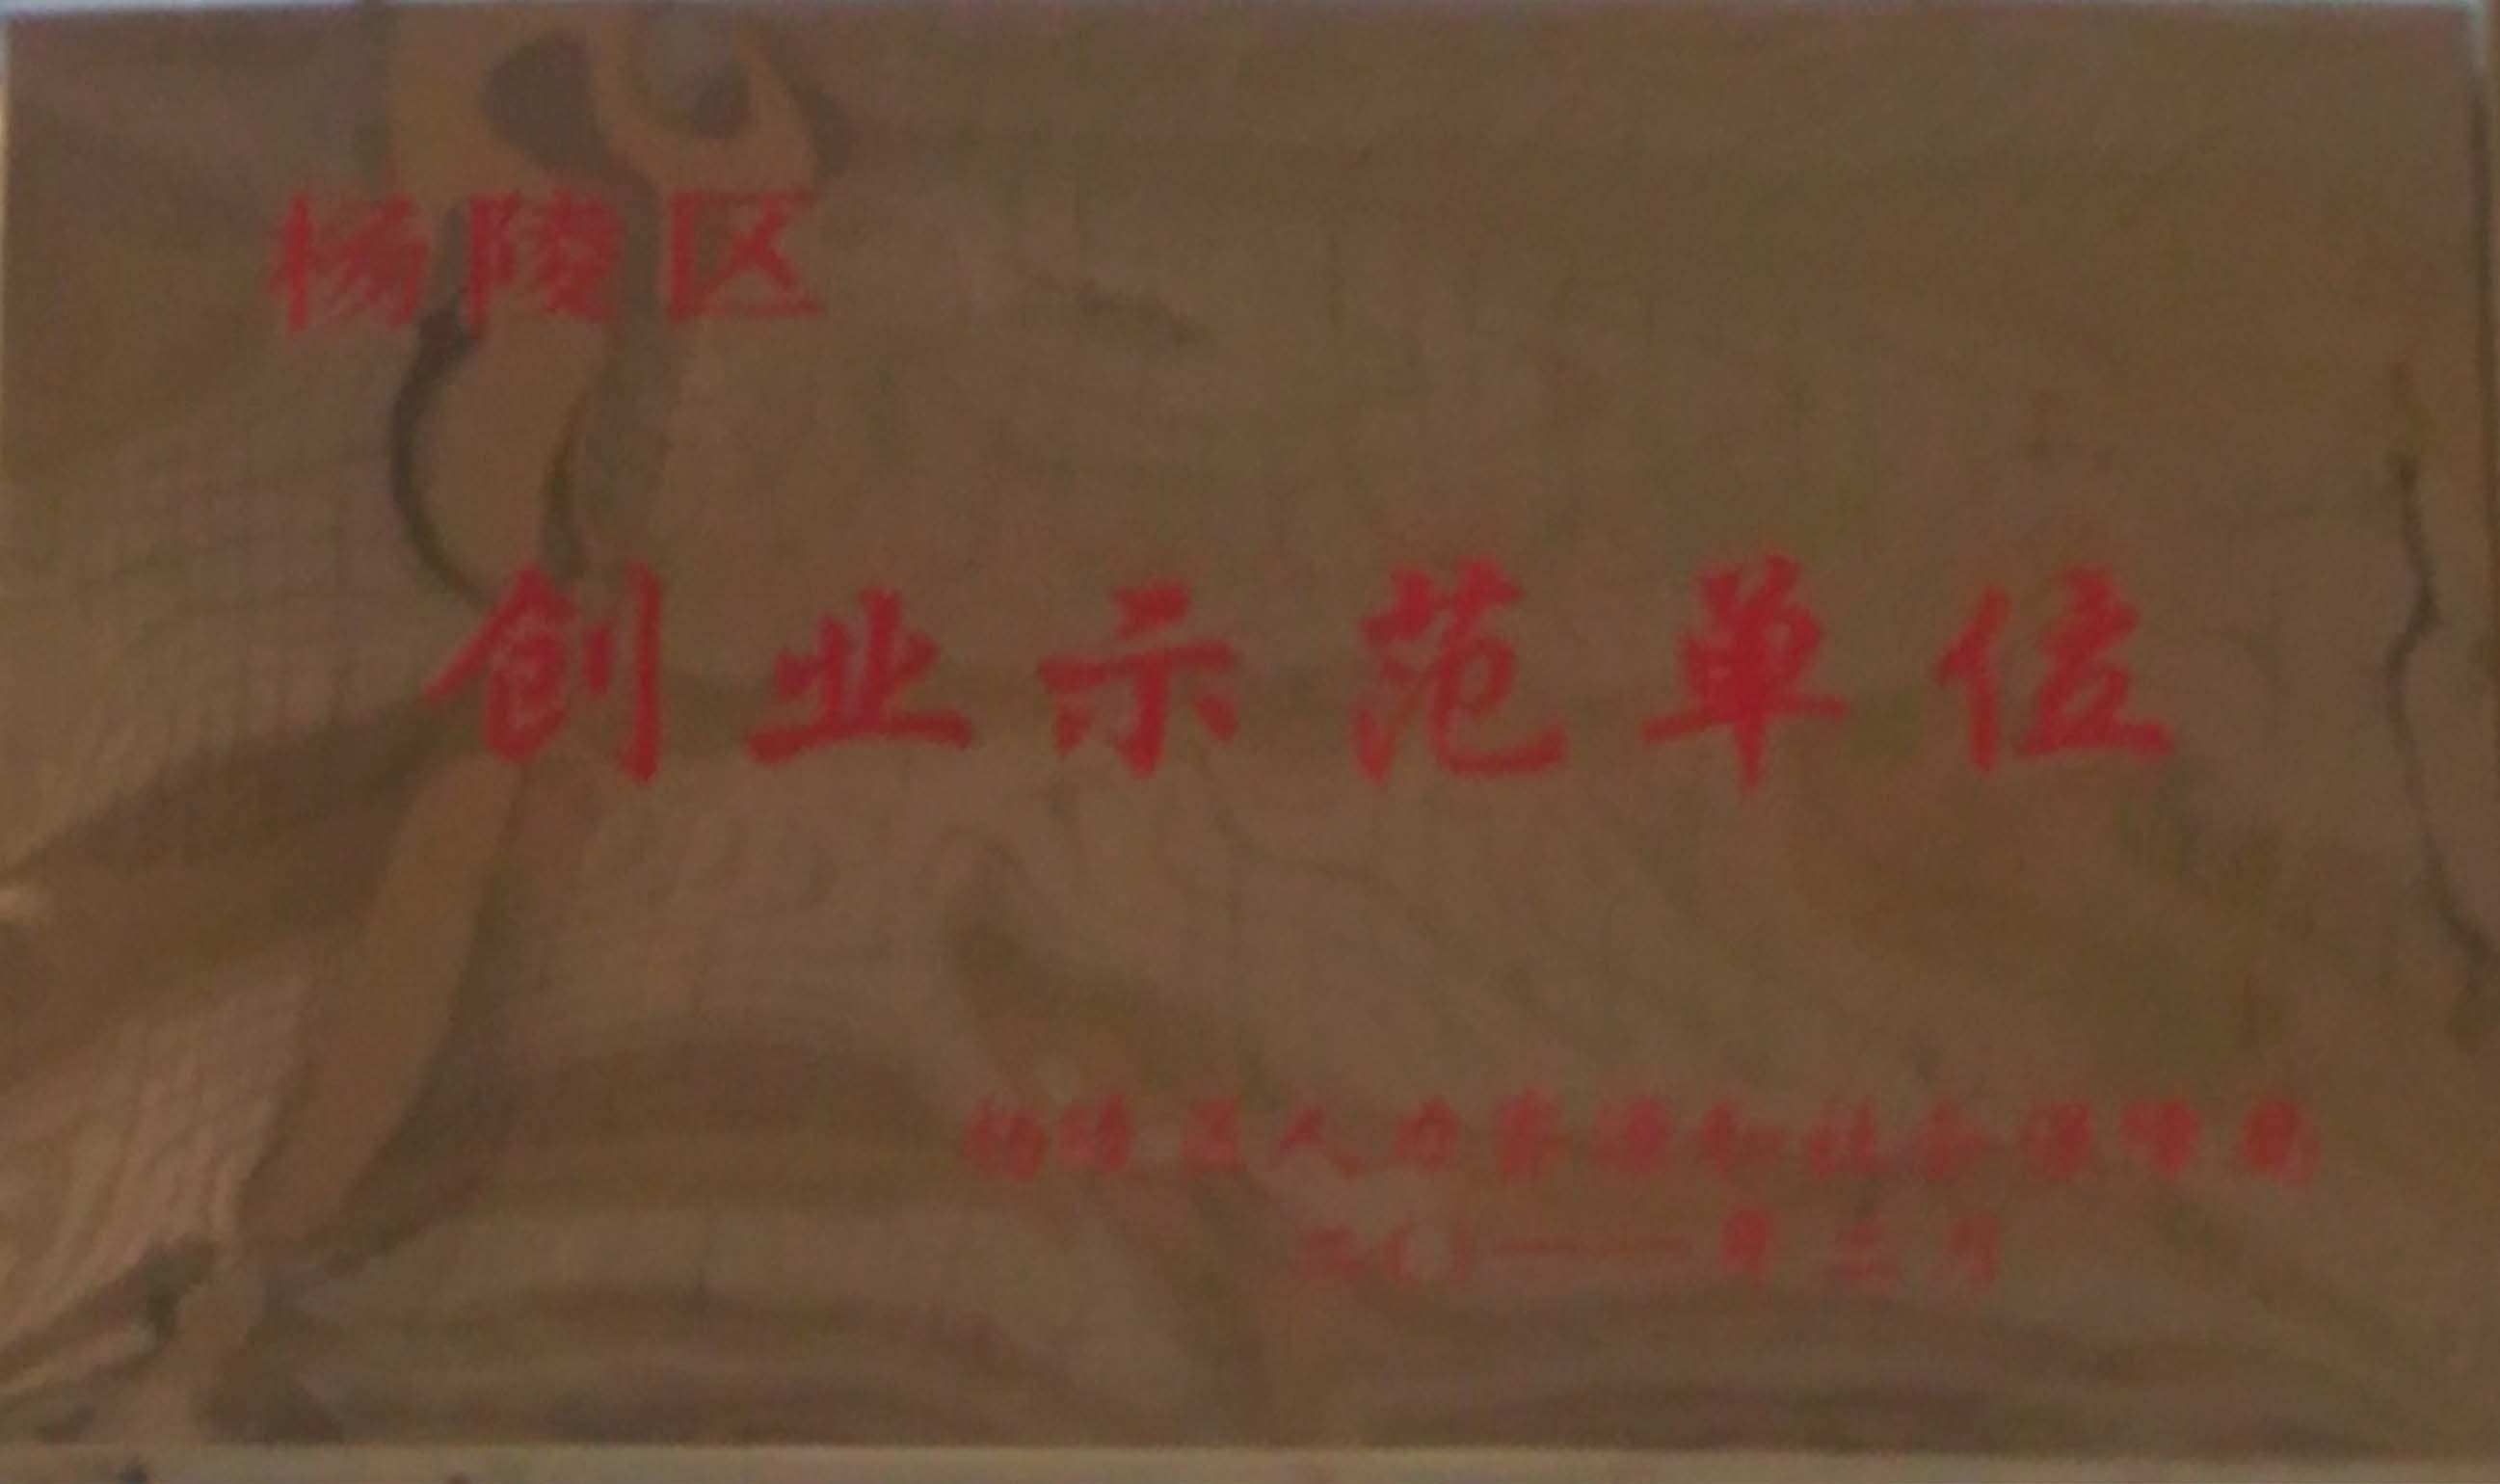 杨陵区
创业示范单位
杨陵区人力资源和社会保障局
二〇一一年二月